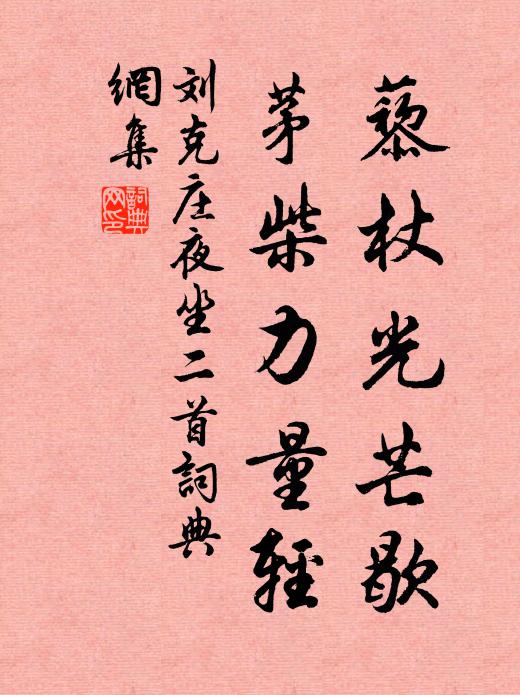 藜杖光芒歇
茅柴力量輕
刘克庄夜坐二首詞典
網集
詞典
网印